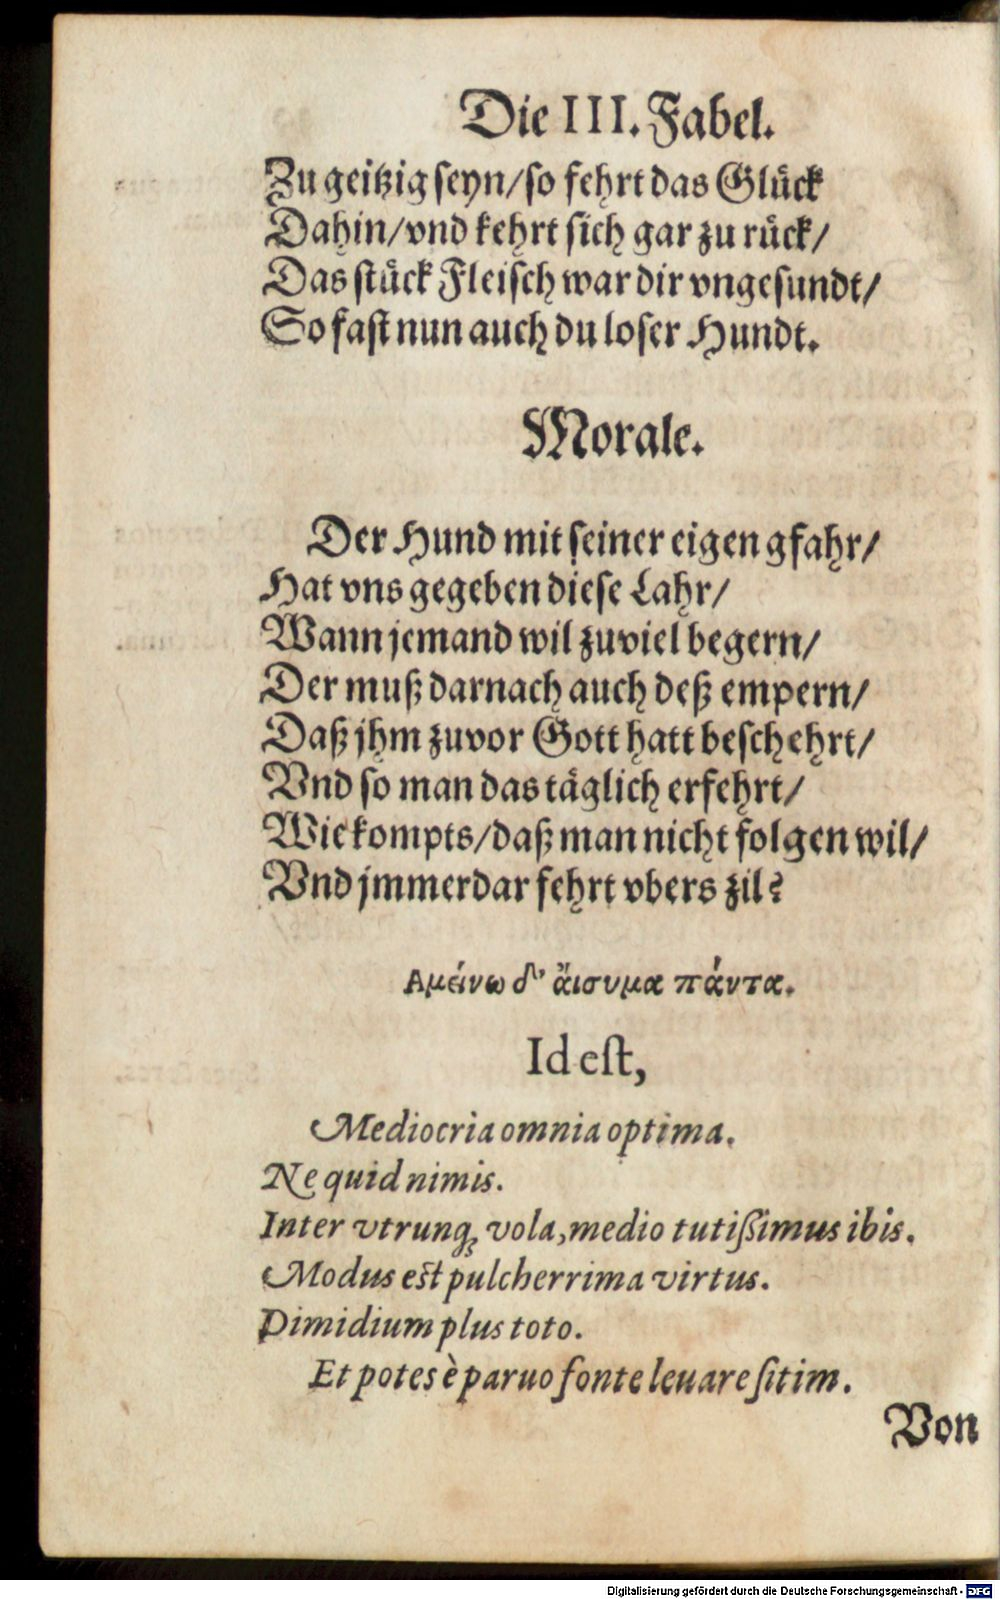 Die III. Fabel.
Zu geitzig seyn/so fehrt das Glück
Dahin/vnd kehrt sich gar zu rück/
Das stück Fleisch war dir vngesundt/
So fast nun auch du loser Hundt.
Morale.
Der Hund mit seiner eigen gfahr/
Hat vns gegeben diese Lahr/
Wann jemand wil zuviel begern/
Der muß darnach auch deß empern/
Daß jhm zuvor Gott hatt beschehrt/
Vnd so man das täglich erfehrt/
Wie kompts/daß man nicht folgen wil/
Vnd jmmerdar fehrt vbers zil?
Αμείνω δ' ἄισυμα πάντα.
Id est,
Mediocria omnia optima.
Ne quid nimis.
Inter vtrunq; vola, medio tutißimus ibis.
Modus est pulcherrima virtus.
Dimidium plus toto.
Et potes è paruo fonte leuare sitim.
Von
Digitalisierung gefördert durch die Deutsche Forschungsgemeinschaft - DFG